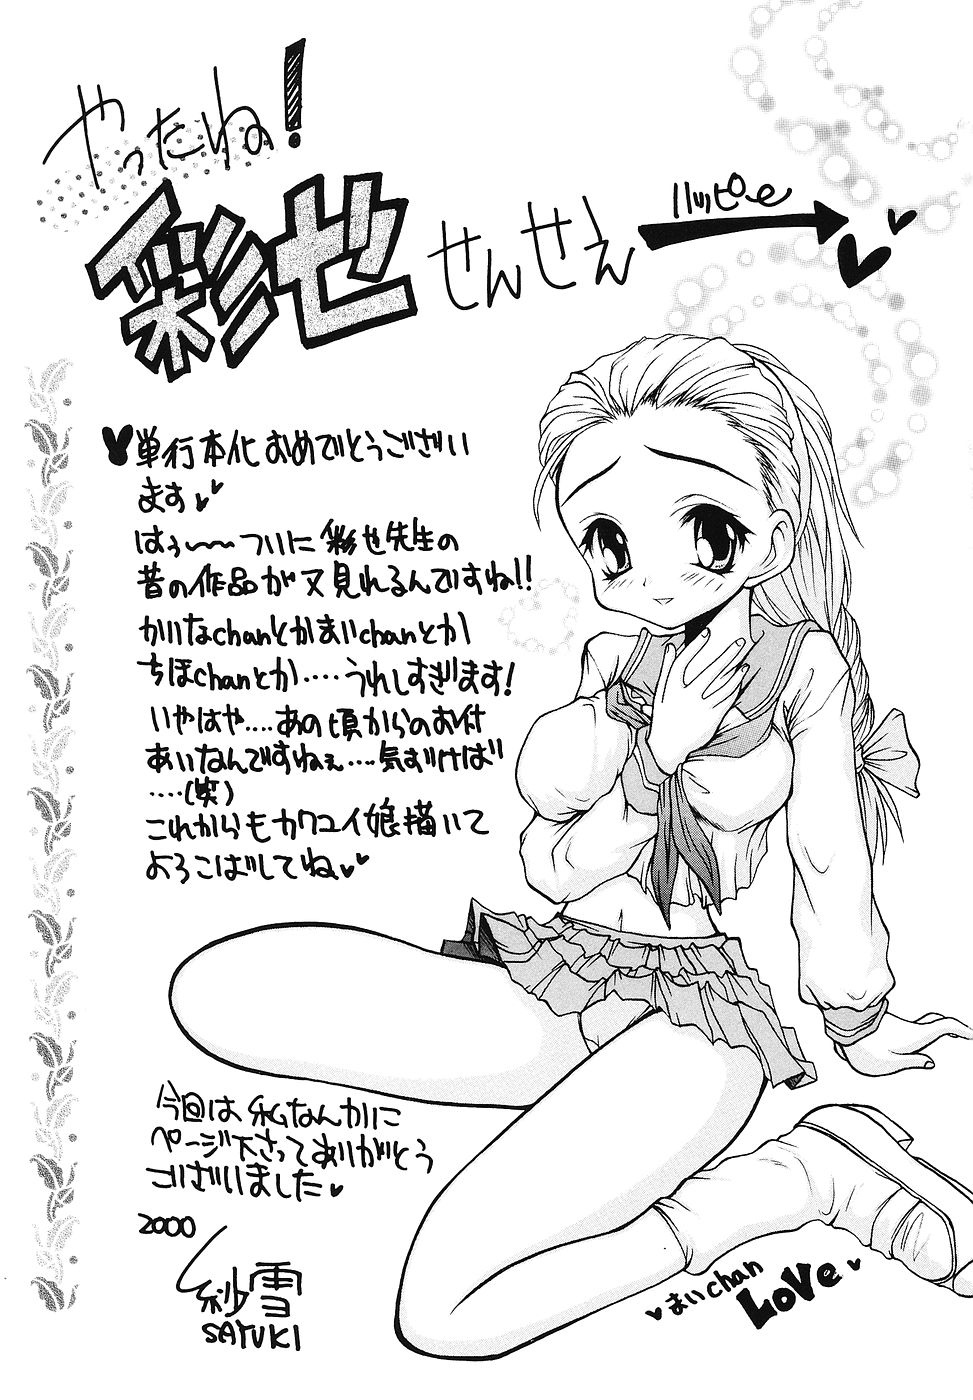 やったね!
彩世
せんせえ
ハッピe
単行本化おめでとうござい
ます
はぅ〜〜ついに彩世先生の
昔の作品が又見れるんですね!!
かいなchanとかまいchanとか
ちほchanとか‥‥うれしすぎます!
いやはや‥‥あの頃からのお付
あいなんですねぇ‥‥気づけば
‥‥(笑)
これからもカワユイ娘描いて
よろこばしてね
今回は私なんかに
ページ下さってありがとう
ございました
2000
紗雪
SAYUKI
まいchan
LoVe